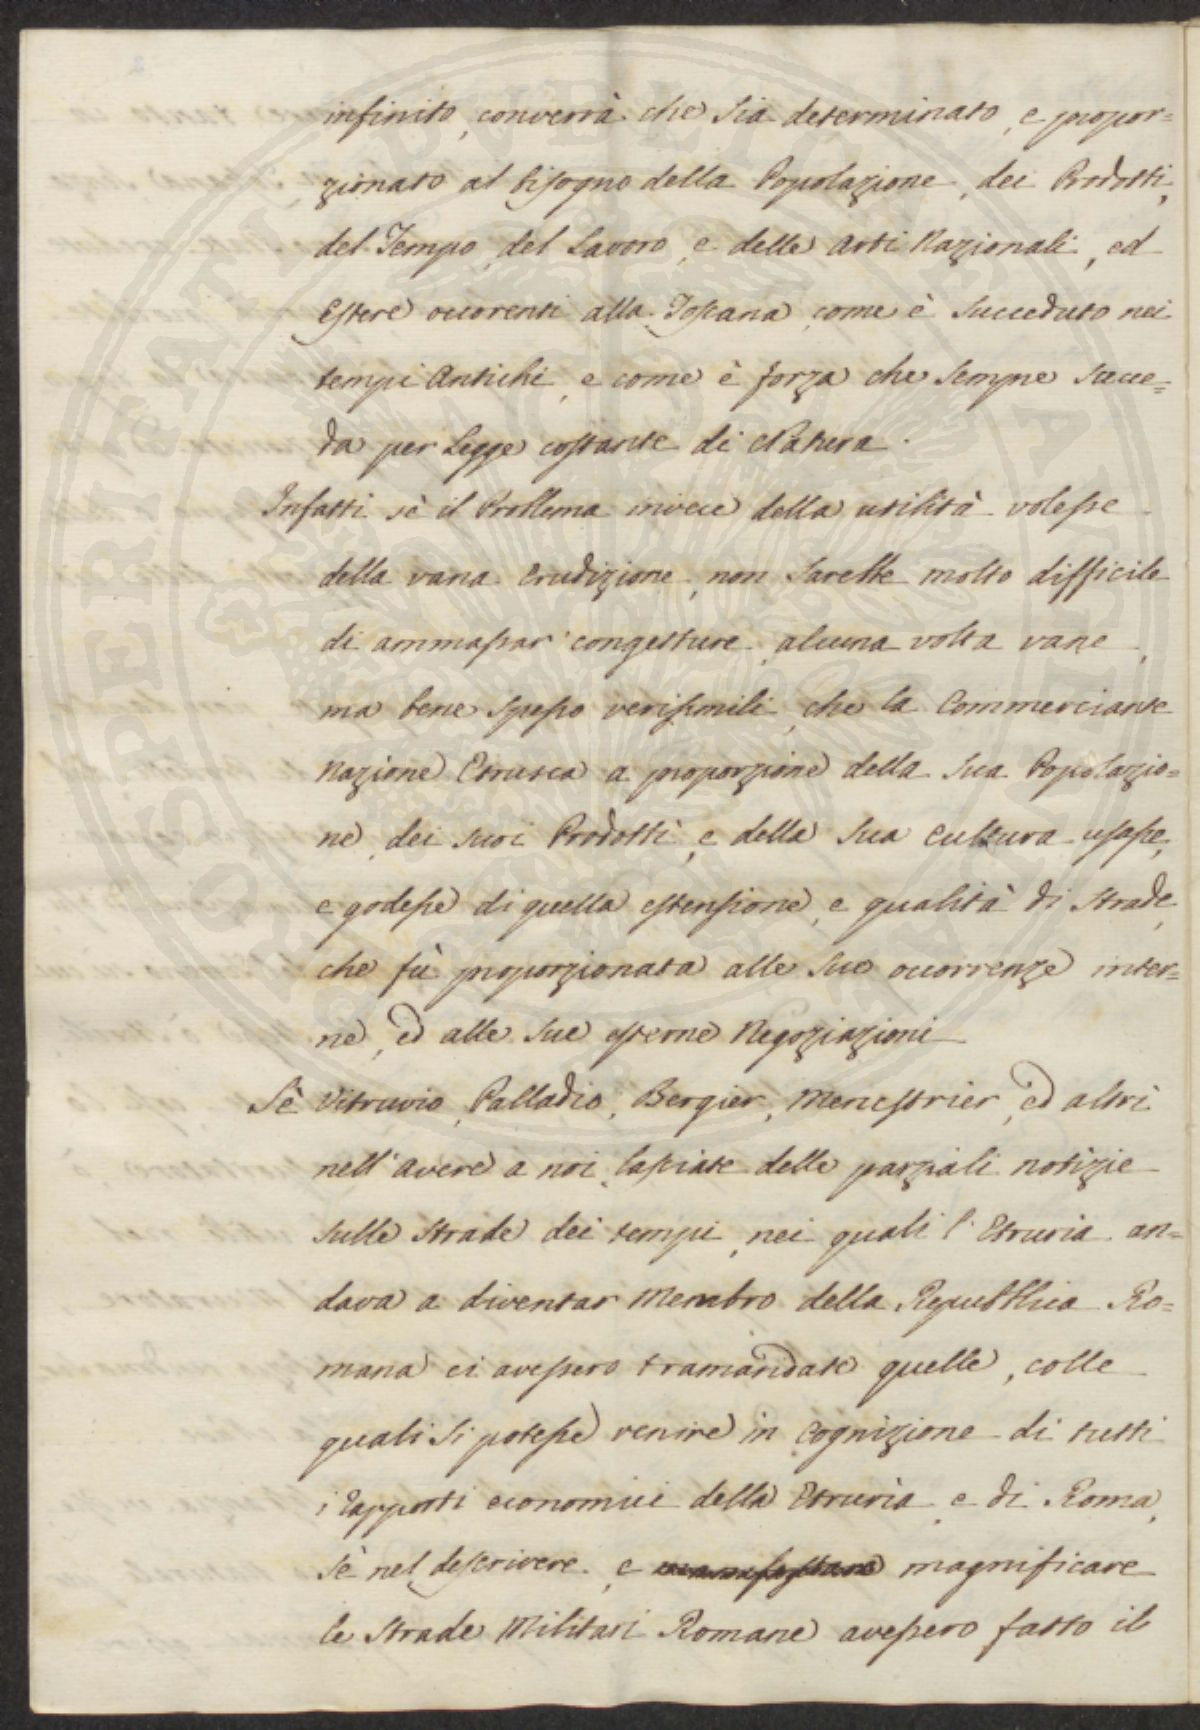 infinito, converrà che sia determinato, e propor=
zionato al bisogno della Popolazione, dei Prodotti,
del Tempo, del Lavoro, e delle Arti Nazionali, ed
Estere occorenti alla Toscana, come è succeduto nei
tempi Antichi, e come è forza che sempre succe=
da per Legge costante di Natura.
Infatti sè il Problema invece della utilità volesse
della vana erudizione, non sarebbe molto difficile
di ammassar' congetture, alcuna volta vane,
ma bene spesso verissimili, che la Commerciante
Nazione Etrusca a proporzione della sua Popolazio=
ne, dei suoi Prodotti, e della sua cultura usasse,
e godesse di quella estensione, e qualità di strade,
che fù proporzionata alle sue occorrenze inter=
ne, ed alle sue esterne Negoziazioni
Sè Vitruvio, Palladio, Bergier, Menestrier, ed altri
nell'avere a noi lasciate delle parziali notizie
sulle strade dei tempi, nei quali l'Etruria an=
dava a diventar membro della Repubblica Ro=
mana ci avessero tramandate quelle, colle
quali si potesse venire in cognizione di tutti
i rapporti economici della Etruria, e di Roma,
sè nel descrivere, e magnificare
le strade Militari Romane avessero fatto il
PROSPERITATI PVBLICAE AVGENDAE